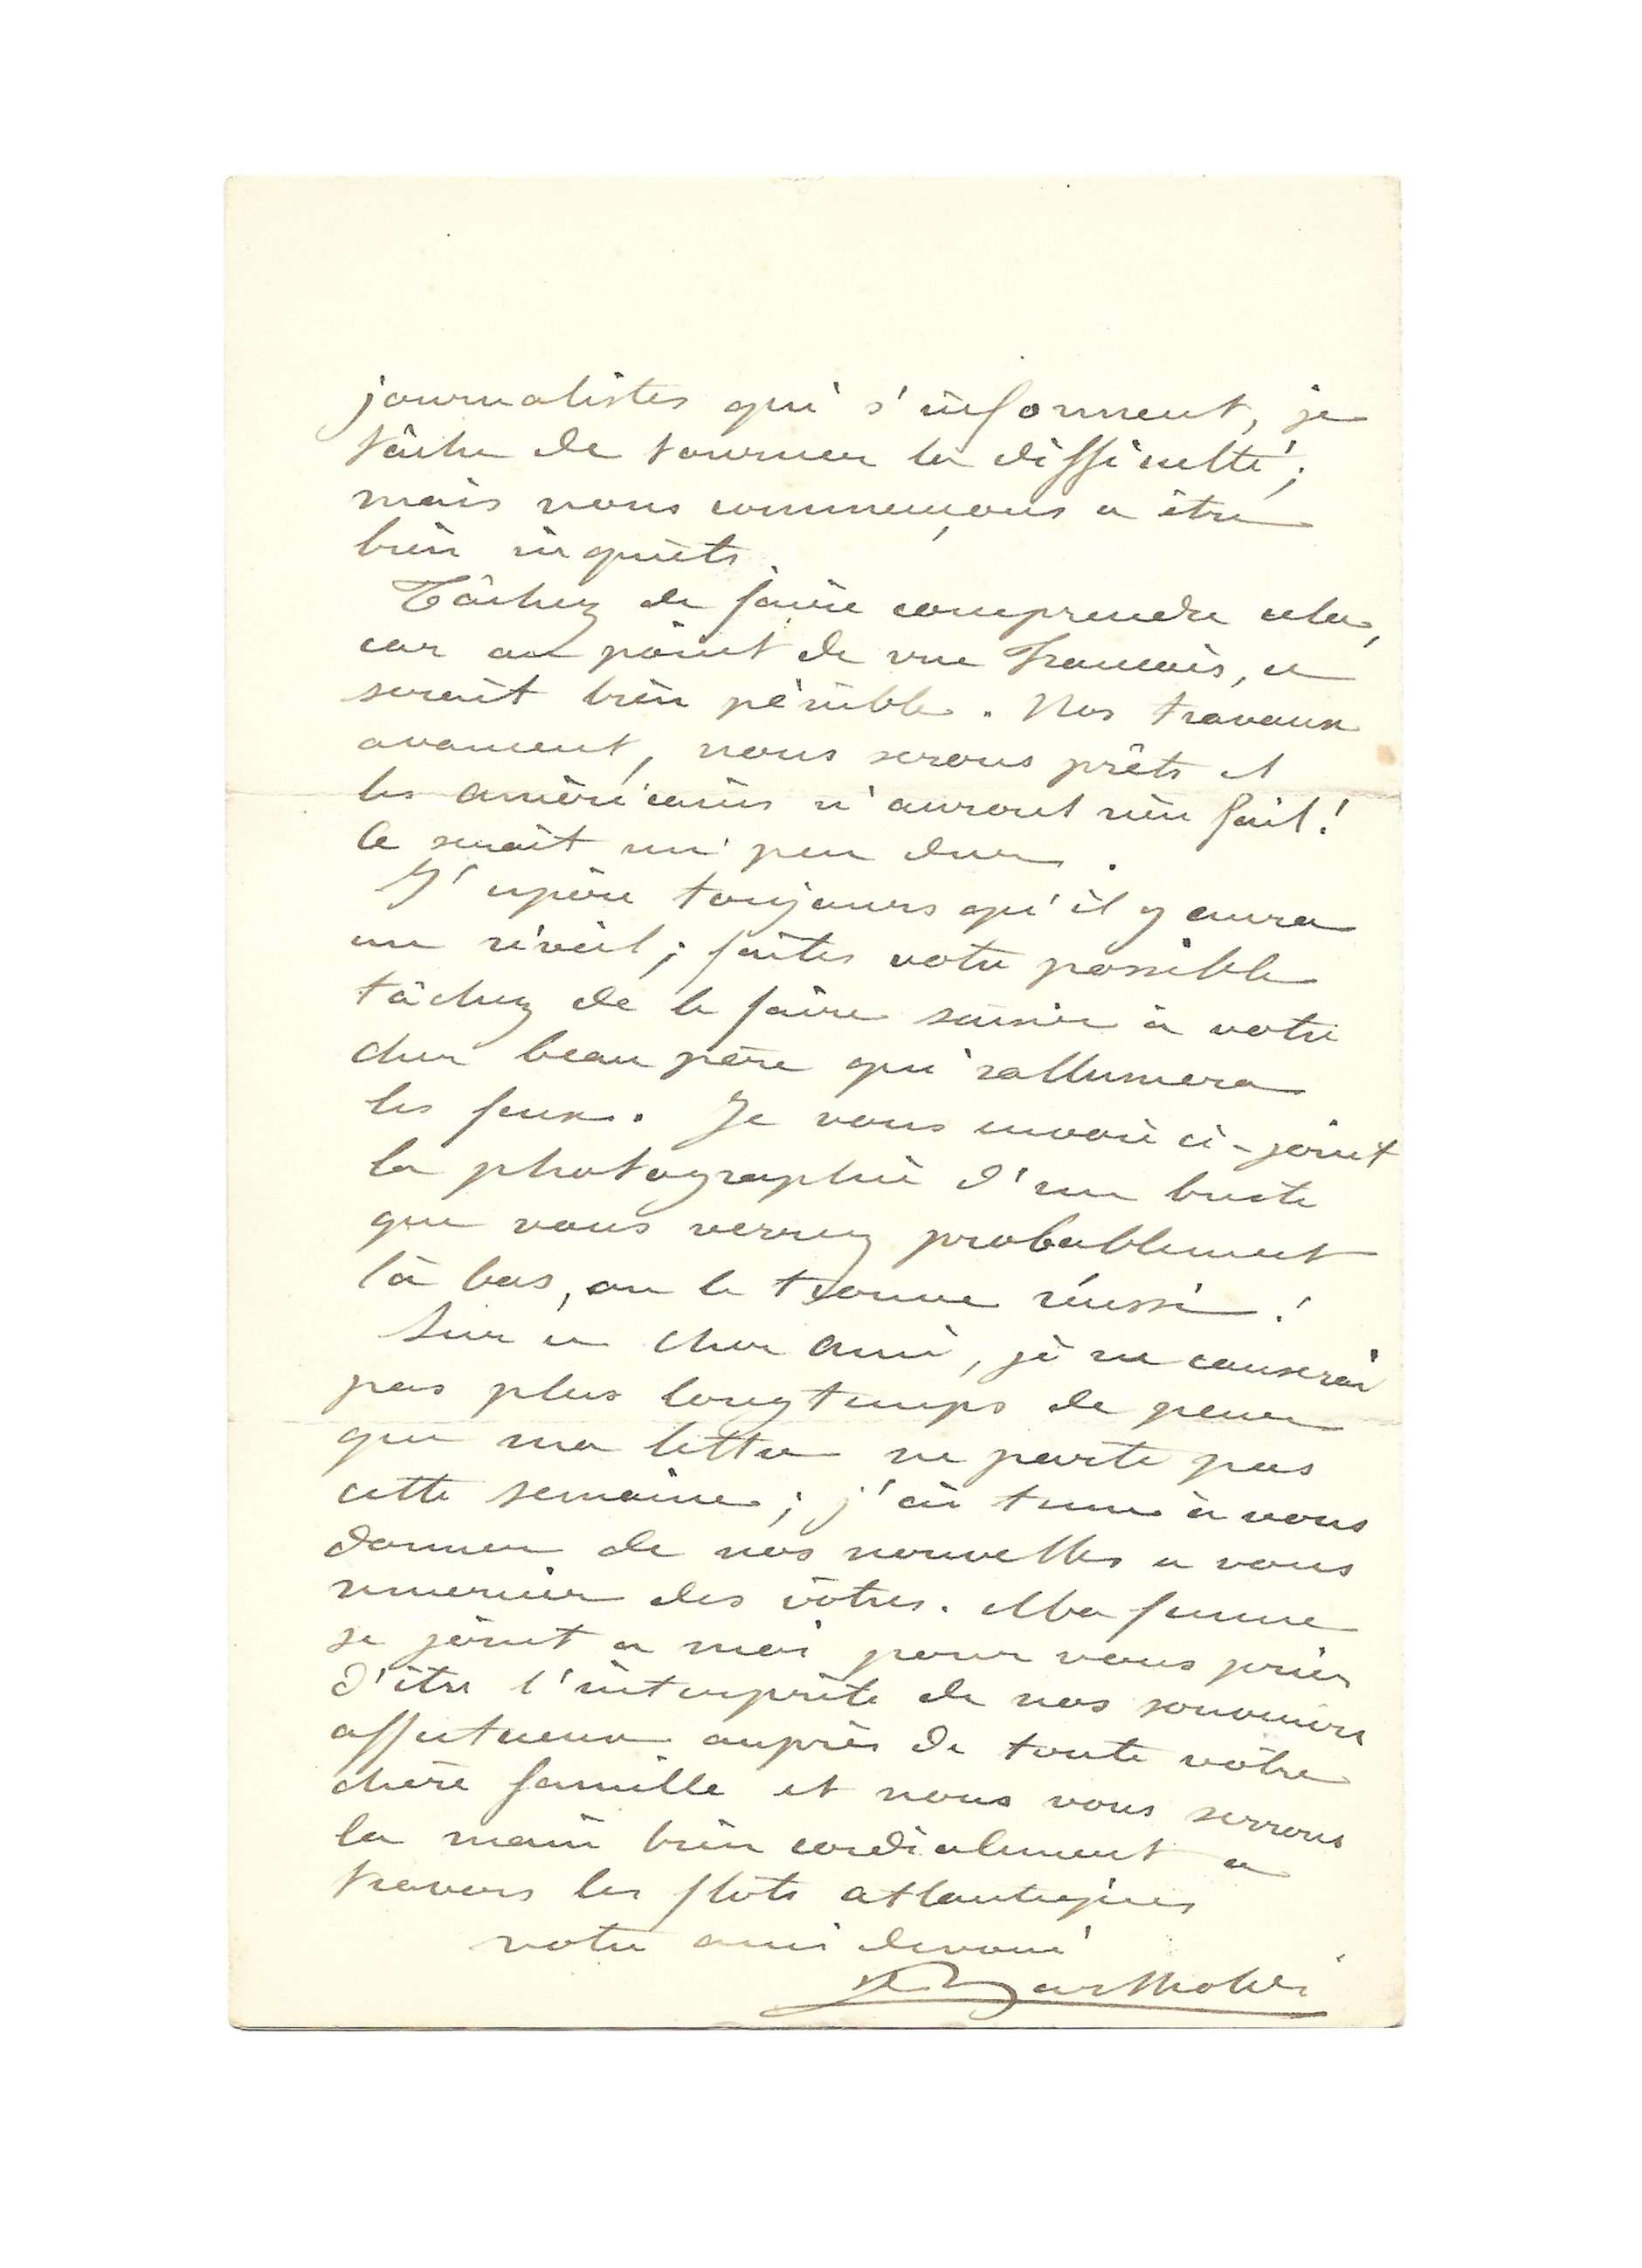 journalistes qui s'informent, je
tâche de tourner la difficulté;
mais nous commençons a être
bien inquiets.
Tâchez de faire comprendre cela,
car au point de vue Français, ce
serait bien pénible. Nos travaux
avancent, nous serons prêts et
les américains n'auront rien fait!
Ce serait un peu dur.
J'espère toujours qu'il y aura
un réveil; faites votre possible
tâchez de le faire saisir à votre
cher beau père qui rallumera
les feux. Je vous envoie ci-joint
la photographie d'un buste
que vous verrez probablement
là bas, on le trouve réussi!
Sur ce cher ami, je ne causerai
pas plus longtemps de peur
que ma lettre ne parte pas
cette semaine; j'ai tenu à vous
donner de nos nouvelles a vous
remercier des vôtres. Ma femme
se joint a moi pour vous prier
d'être l'interprète de nos souvenirs
affectueux auprès de toute votre
chère famille et nous vous serrons
la main bien cordialement a
travers les flots atlantiques
votre ami devoué
Bartholdi